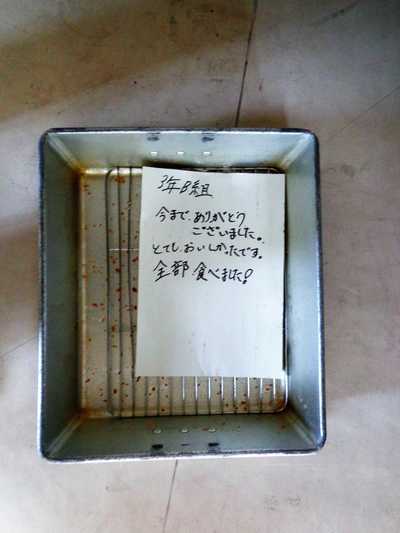 3年B組
今まで ありがとう
ございました。
とてもおいしかったです。
全部 食べました!